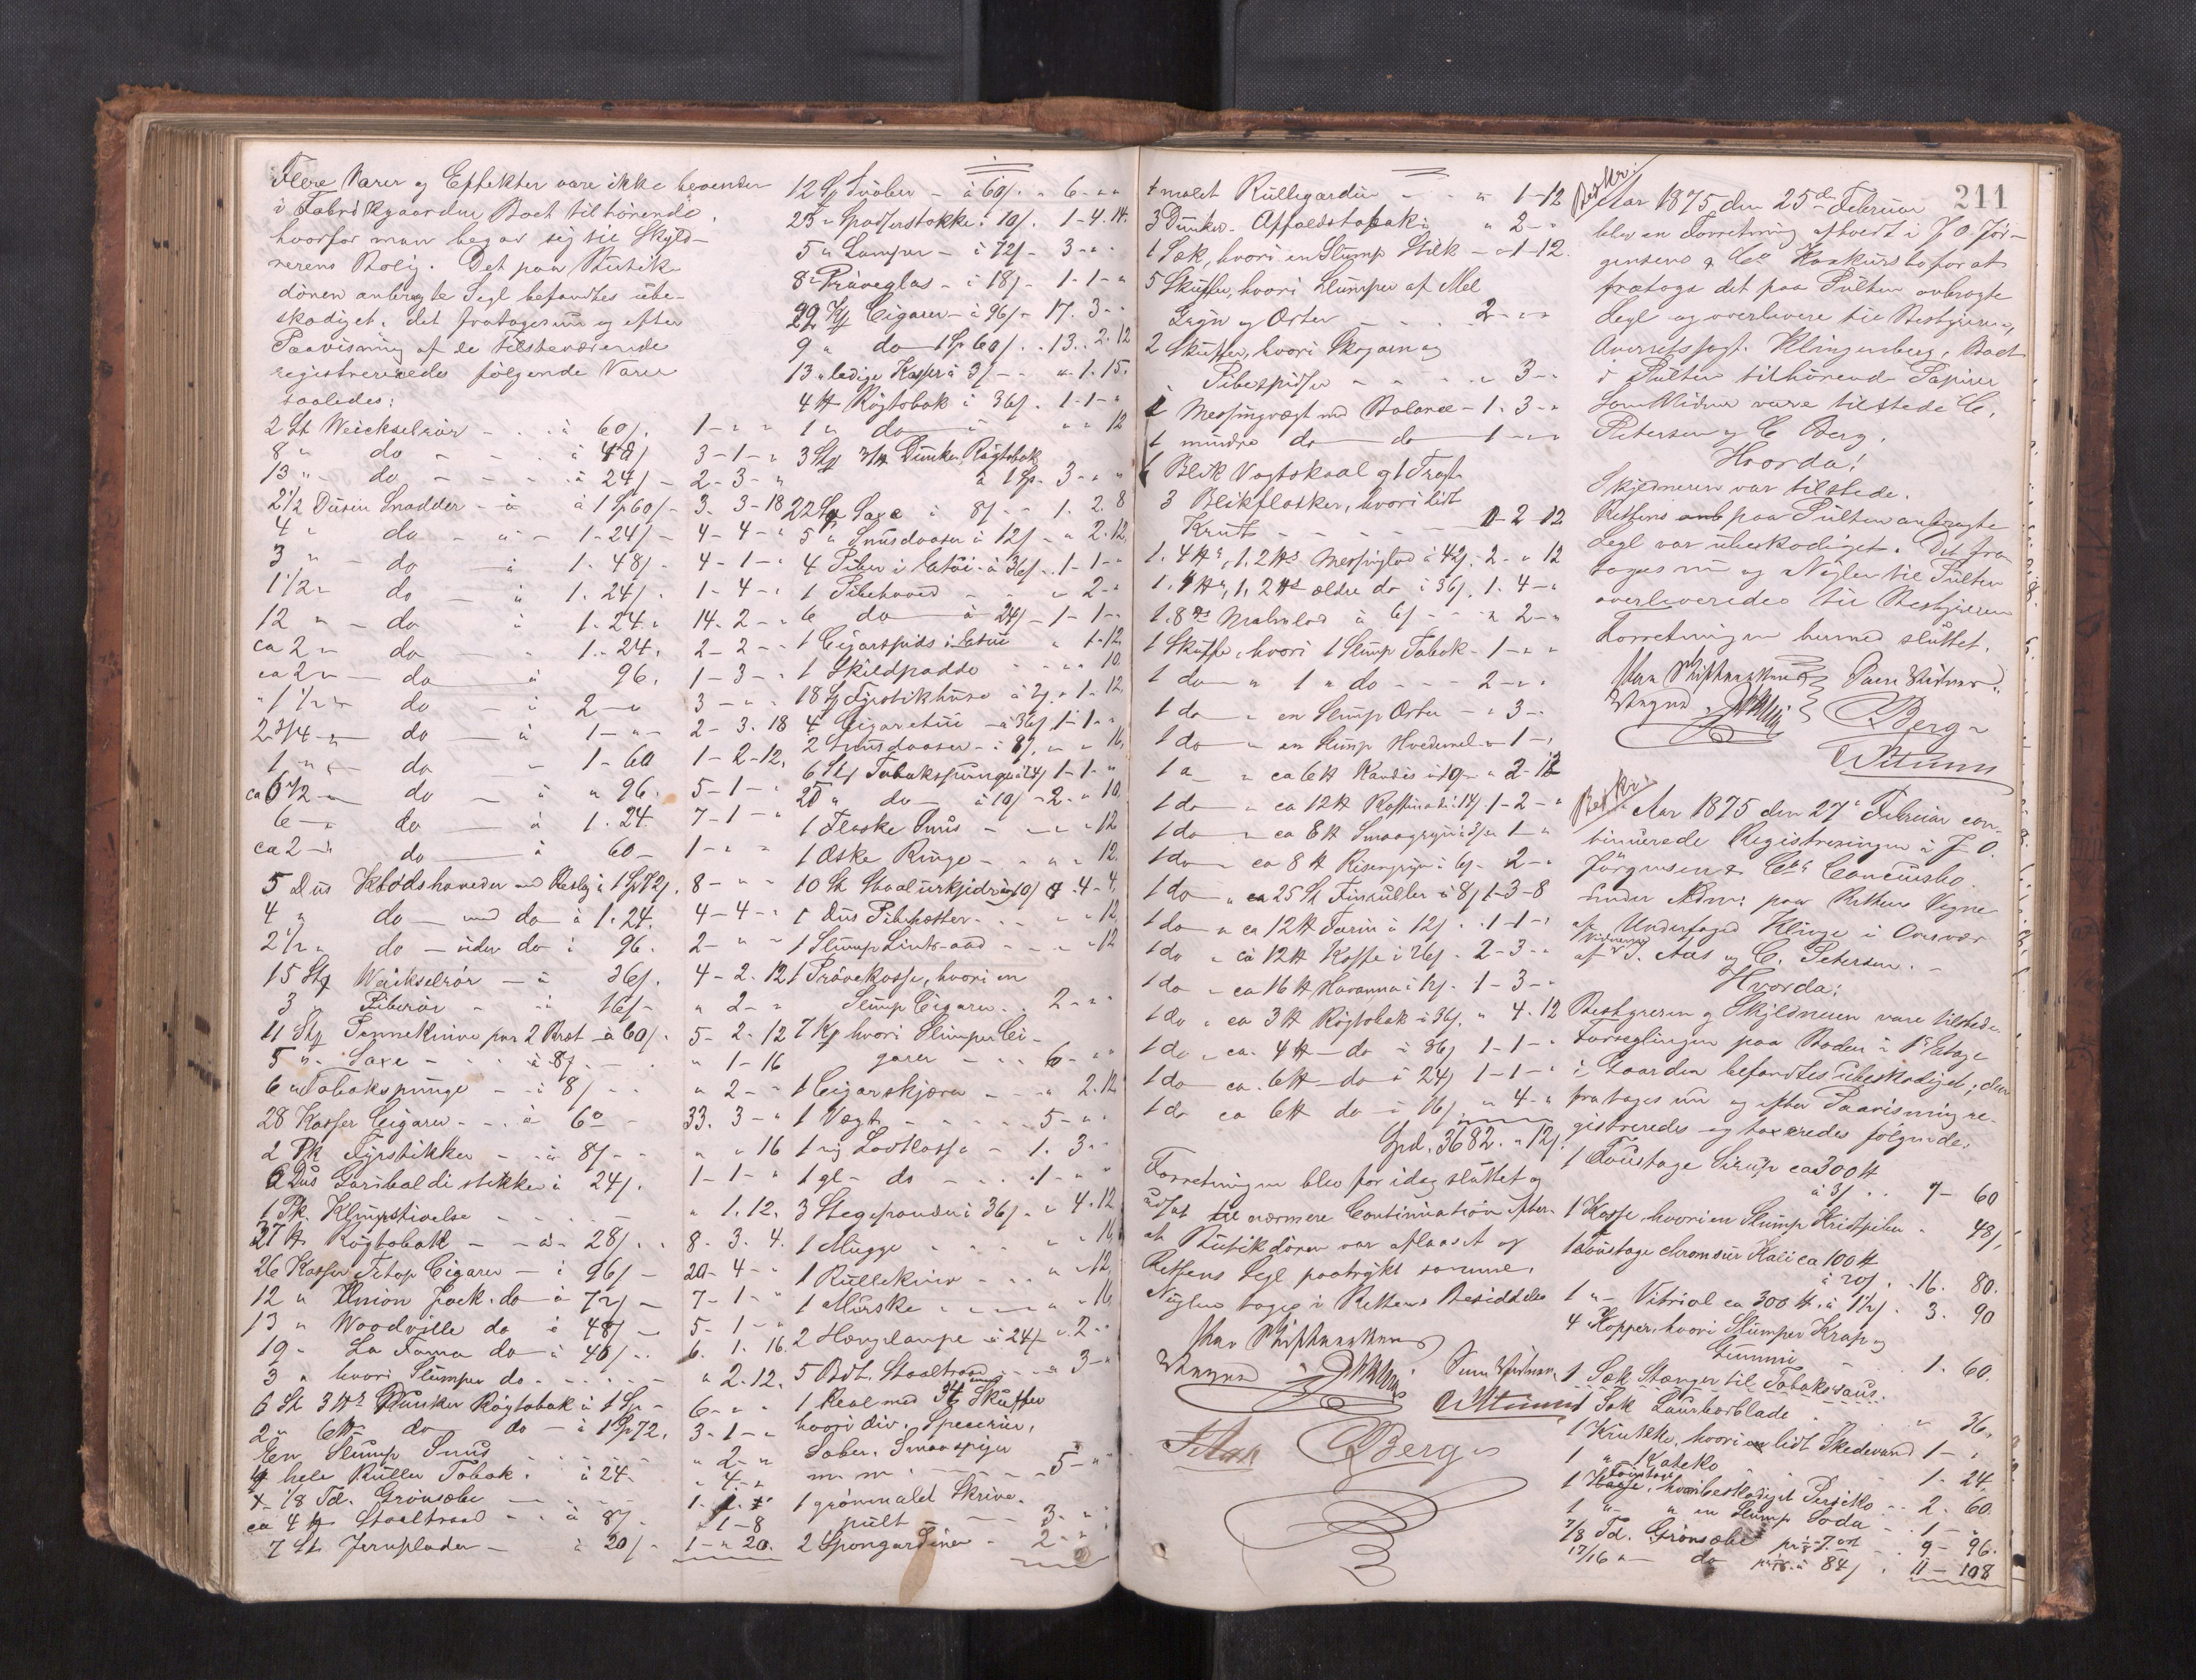 Flere Varer og Effekter vare ikke beroende
i Fabrikgaarden Boet tilhørende,
hvorfor man begav sig til Skyld-
nerens Bolig. Det paa Butik-
dören anbragte Segl befandtes übe-
skadiget. Det fratoges nu og efter
Paavisning af de tilstedeværende
registreredes følgende Varer
saaledes:
2 St Weichselrör - - à 60/. 1 - " "
8 " do - - - à 48/ 3-1- "
13 " do - - - à 24/ - 2-3- "
2 1/2 Dusin Snadder - à 1 Sp 60/ - 3-3-18
4 " do - " - 1-24/ - 4-4- "
3 " - do - à 1. 48/. 4-1- "
1 1/2 " do - à 1. 24/. 1-4- "
12 " - do à 1-24. 14.2- "
ca 2 " do - 1.-24. 2-2- "
ca 2 " - do - à 96. 1-3- "
" 1 1/2 " do - à 2 - " 3 - " "
2 3/4 - " do - à 1- " - 2-3.18
1 " " do - 1-60 1-2-12.
ca 6 1/2 - " do - à " 96. 5-1- "
6 - " do - à 1.24. 7-1- "
ca 2 - " do - à 60 - 1- " "
5 Dus Klodshoveder med Beslag à 1 Sp 72/. 8- " "
4 " do - med do à 1.24. 4-4- "
2 1/2 " do - uden do à 96. 2- " "
15 Stk Weichselrör - à 36/. 4-2.12
3 " Piberör - - à 16/- " 2- "
11 Stk Penneknive paa 2 Bræt à 60/. 5-2-12
5 " Saxe - - - à 8/. - . " 1-16
6 " Tobakspunge - à 8/ - - " 2- "
28 Kasser Cigarer - - à 60 - 33. 3- "
2 Pk Fyrstikker - - à 8/ - - " " 16
6 Dus Garibaldi stikker à 24/. 1-1- "
1 Pk. Klinxstivelse - - - " 1.12.
37 ℔ Rögtobak - - à - 28/. . 8-3.4.
26 Kasser Fetop Cigarer - à 96/ - 20-4- "
12 " Union Jack. do à 72/ - 7-1- "
13 " Woodville do à 48/ - 5-1- "
19 " La Fama do à 40/ . . 6. 1. 16.
3 " hvori Slumper do - - - - " 2.12.
6 St 3 ℔s Dunker Rögtobak à 1 Sp - 6- " "
2 " 6 ℔s do - do - à 1 Sp 72. 3-1- "
En Slump Snus - - - " 2- "
4 hele Ruller Tobak. à 24 - " 4- "
1/8 Td. Grönsæbe - - -
ca 4 ℔ Staaltraad - - à 8/ - " 1-8
7 St. Jernplader - à 20/ - 1- " 20.
12 St Svöber - à 60/. - 6- " "
23 " Spadserstokke à 10/. 1-4.14.
5 " Lamper - à 72/- 3- " "
8 " Pröveglas - à 18/ - 1-1- "
22 Ks Cigarer - à 96/- 17. 3- "
9 " do 1 Sp 60/. . 13. 2.12
13 " ledige Kasser à 3/ - - " 1.15.
4 ℔ Rögtobak à 36/. 1-1- "
1 " do " " " 12
3 Stk 3 ℔ Dunker Rögtobak
à 1 Sp. 3- " "
22 Stk Saxe à 8/ - - 1. 2. 8
5 " Snusdaaser à 12/ - " 2.12.
4 Piber i Etui à 36/. 1-1- "
1 Pibehoved - - " 2- "
6 do à 24/ - 1-1- "
1 Cigarspids i Etui " 1-12.
1 Skildpadde - - " " 10.
18 St Fyrstikhuse à 7/. " 1. 12.
4 Cigaretui - à 36/ 1-1- "
2 Snusdaaser - à 8/. " " 16.
6 Stk Tobakspunge à 24/ 1-1- "
25 " do à 10/ - 2. " 10
1 Flaske Snus - - " " 12
1 Æske Ringe - - " " 12.
10 St Staalurkjeder à 10/ " 4-4.
1 Dus Pibehætter - - " " 12.
1 Slump Lints-aad - - " 12
1 Prövekasse, hvori en
Slump Cigarer. . 2- " "
7 Ks hvori Slumper Ci-
garer - - - 6- " "
1 Cigarskjærer - - " 2.12
1 Vægt - - - - 5- " "
1 ny Lodkasse - 1. 3- "
1 gl - do - - - 1- " "
3 Stegepander à 36/. - " 4.12
1 Mugge - - - " " 16
1 Rullekniv - - - " " 12.
1 Mürske - - - - " " 16
2 Hængelampe à 24/- " 2- "
5 Bdt. Staaltraad - - - " 3- "
1 Reol med 34 Skuffer
hvori div. Specerier,
Saber. Smaaspiger
m.m. - - - - - 5- " "
1 grönmalet Skrive-
pult - - - 3- "
2 Spongardiner - 2- "
1 malet Rullegardin - - " 1-12
3 Dunker Affaldstobak à " 2- "
1 Sæk, hvori en Slump Stilk - " 1-12.
5 Skuffer, hvori Slumper af Mel
Gryn og Erter - - - 2- " "
2 Skuffer, hvori Skogarn og
Pibespidser - - - - " 3- "
1 Messingvægt med Balance - 1. 3- "
1 mindre do - do - 1- " "
1 Blik Vægtskaal og 1 Tragt
3 Blikflasker, hvori lidt
Krut - - - - 1-2-12
1. 4 ℔s, 1. 2 ℔s Messinglod à 42/. 2- " 12
1. 4 ℔s, 1. 2 ℔s ældre do à 36/. 1. 4- "
1. 8 ℔s Malmlod à 6/ - - " 2- "
1 Skuffe, hvori 1 Slump Tobak - 1- " "
1 do " 1 " do - - - 2- " "
1 do - " en Slump Erter - " 3- "
1 do " en Slump Hvedemel - " 1- "
1 " " ca 6 ℔ Kandis à 19 - " 2-12
1 do " ca 12 ℔ Raffinade à 14/. 1-2- "
1 do " ca 8 ℔ Smaagryn à 3/ " 1- "
1 do - ca 8 ℔ Risengryn à 6/. " 2- "
1 do " ca 25 St Finruller à 8/ 1-3-8
1 do " ca 12 ℔ Farin à 12/. . 1-1- "
1 do " ca 12 ℔ Kaffe à 26/. 2-3- "
1 do - ca 16 ℔ Havanna à 12/. 1-3- "
1 do " ca 3 ℔ Rögtobak à 36/. " 4.12
1 do " ca. 4 ℔ - do - à 36/ 1-1- "
1 do - ca. 6 ℔ - do à 24/ 1-1- "
1 do ca 6 ℔ do - à 16/ " 4- "
Spd. 3682. " 12/.
Forretningen blev for idag sluttet og
udsat til nærmere Continuation efter-
at Butikdören var aflaaset og
Rettens Segl paatrykt samme.
Nøglen toges i Rettens Besiddelse
Som Vidner,
CBerg
211
Beskr:
Aar 1875 den 25de Februar
blev en Forretning afholdt i J. O. Jör-
gensens & Co Konkursbo for at
fratage det paa Pulten anbragte
Segl og overlevere til Bestyreren,
Overretssagf. Klingenberg, Boet
i Pulten tilhørende Papirer
Som Vidner vare tilstede C.
Petersen og C Berg.
Hvorda!
Skyldneren var tilstede.
Rettens anb paa Pulten anbragte
Segl var ubeskadiget. Det fra
toges nu og Nøglen til Pulten
overleveredes til Bestyreren
Forretningen hermed sluttet.
Som Vidner
CBerg
Beskr:
Aar 1875 den 27de Februar con-
tinuerede Registreringen i J. O.
Jörgensen & Co.s Concursbo
under Adm: paa Rettens Vegne
af Undertoged Klinge i Overvær
af Vidnerne J. Aas og C. Petersen. -
Hvorda:
Bestyreren og Skyldneren vare tilstede
Forseglingen paa Boden i 1ste Etage
i Gaarden befandtes ubeskadiget, den
fratoges nu og efter Paavisning re-
gistreredes og taxeredes følgende:
1 Foustage Sirup ca 300 ℔
à 3/ . . 7- 60
1 Kasse, hvori en Slump Kridtpiber - 48/.
1 Foustage chromsur Kali ca 100 ℔
à 20/. . 16. 80.
1 " - Vitriol ca 300 ℔ à 1 1/2/. 3. 90
4 Kopper, hvori Slumper Krap og
Gummi - - - 1. 60.
1 Sæk Stænger til Tobakssaus.
1 Sæk Laurbærblade - - " 36.
1 Krukke, hvori en lidt Skedevand 1- "
1 " Kateko - - 1. 24.
1 Kasse Foustage, hvori beskadiget Persiko - - 2. 60.
1 " " en Slump Soda - - 1- "
7/8 Td. Grönsæbe - - 9- 96.
17/16 " - do à 84/ . 11-108